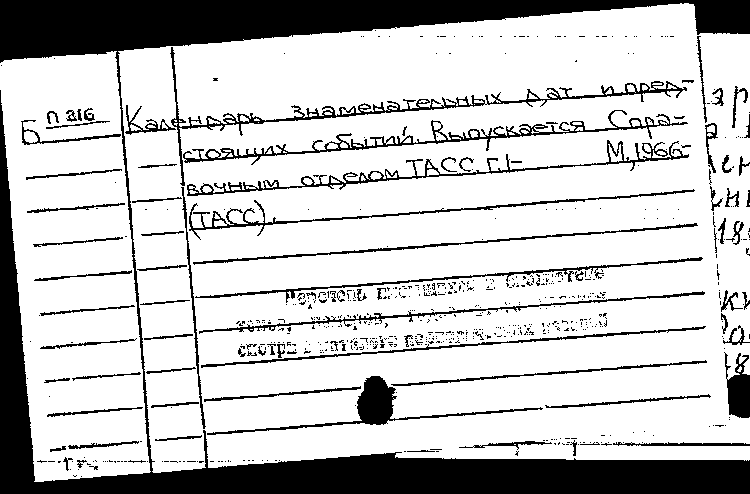 Б П 316 Календарь знаменательных дат и пред-
стоящих событий. Выпускается Спра-
вочным отделом ТАСС. Г.1- М.,1966-
(ТАСС).
Перечень имеющихся в библиотеке
томов, номеров,
смотри в каталоге периодических изданий